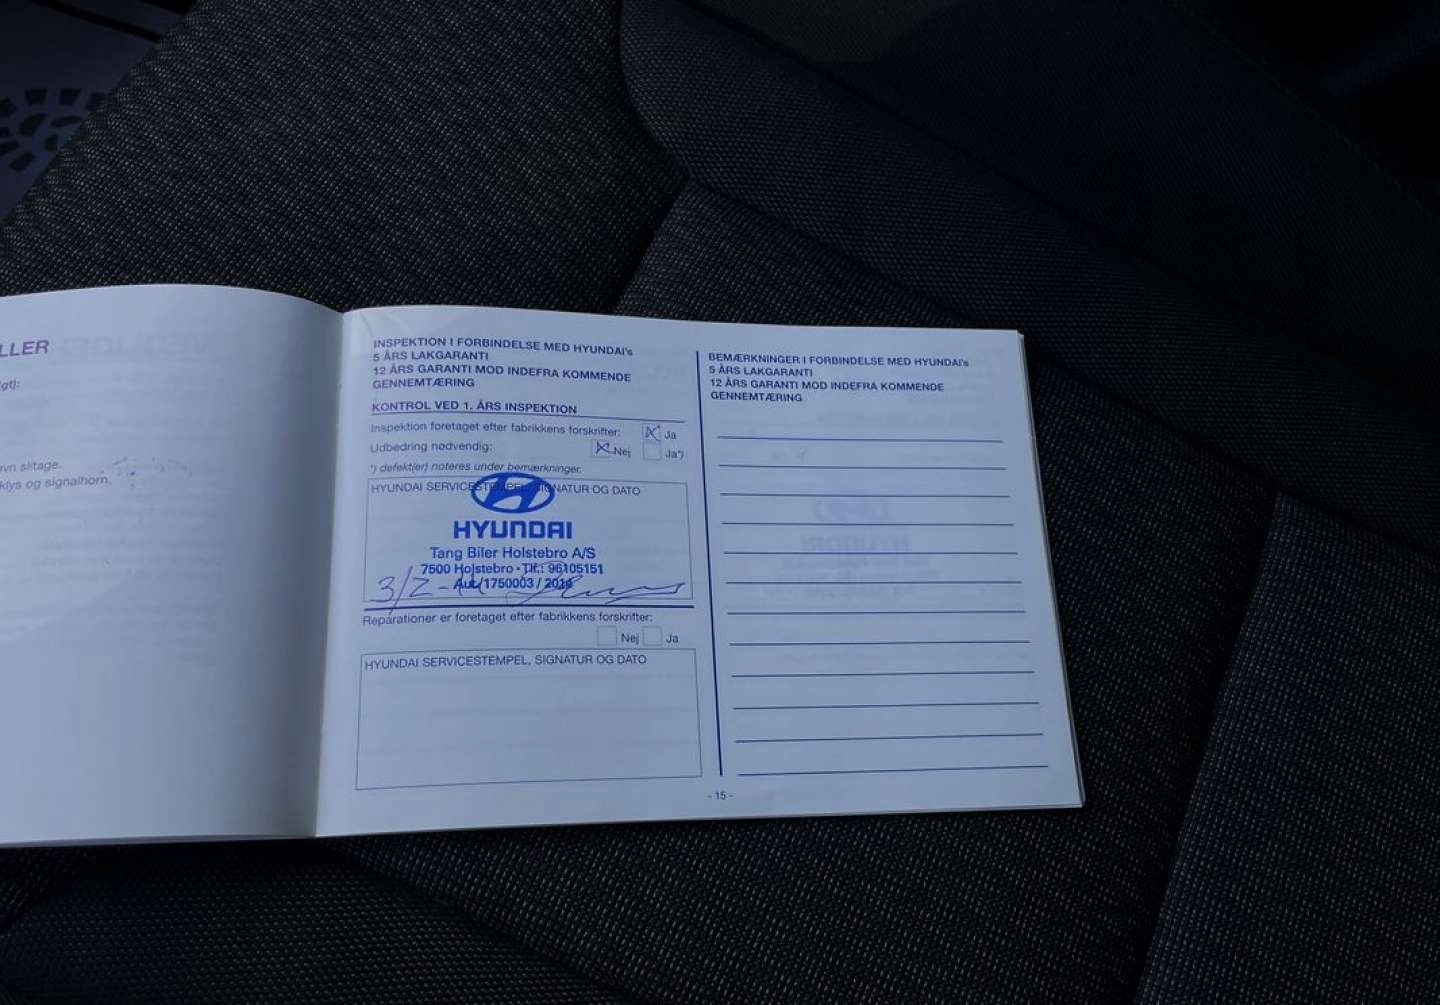 LLER
gt):
vn slitage.
klys og signalhorn.
INSPEKTION I FORBINDELSE MED HYUNDAI's
5 ÅRS LAKGARANTI
12 ÅRS GARANTI MOD INDEFRA KOMMENDE
GENNEMTÆRING
KONTROL VED 1. ÅRS INSPEKTION
Inspektion foretaget efter fabrikkens forskrifter: Ja
Udbedring nødvendig: Nej Ja*)
*) defekt(er) noteres under bemærkninger.
HYUNDAI SERVICESTEMPEL, SIGNATUR OG DATO
HYUNDAI
Tang Biler Holstebro A/S
7500 Holstebro · Tlf.: 96105151
Aut. 1750003 / 2010
3/2-
Reparationer er foretaget efter fabrikkens forskrifter:
Nej Ja
HYUNDAI SERVICESTEMPEL, SIGNATUR OG DATO
BEMÆRKNINGER I FORBINDELSE MED HYUNDAI's
5 ÅRS LAKGARANTI
12 ÅRS GARANTI MOD INDEFRA KOMMENDE
GENNEMTÆRING
- 15 -